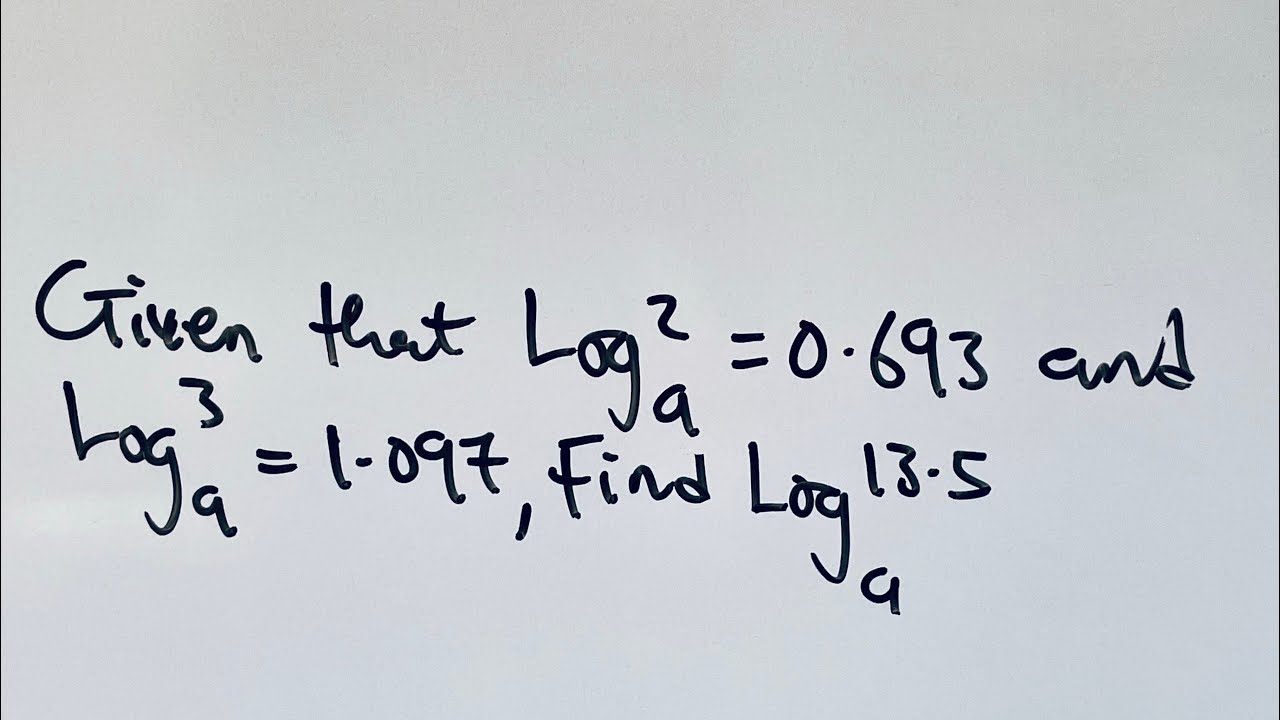 Given that Log₍ₐ₎² = 0.693 and
Logₐ³ = 1.097, Find Logₐ13.5